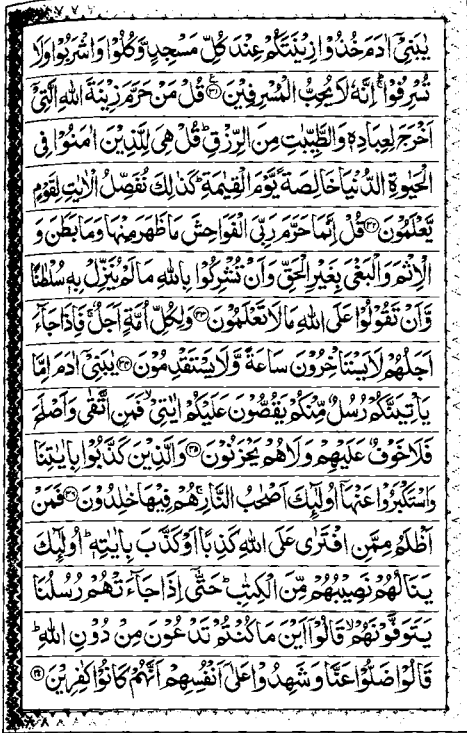 يٰبَنِيْٓ اٰدَمَ خُذُوْا زِيْنَتَكُمْ عِنْدَ كُلِّ مَسْجِدٍ وَّكُلُوْا وَاشْرَبُوْا وَلَا
تُسْرِفُوْا ۚ اِنَّهٗ لَا يُحِبُّ الْمُسْرِفِيْنَ ۝۳۱ قُلْ مَنْ حَرَّمَ زِيْنَةَ اللّٰهِ الَّتِيْٓ
اَخْرَجَ لِعِبَادِهٖ وَالطَّيِّبٰتِ مِنَ الرِّزْقِ ؕ قُلْ هِيَ لِلَّذِيْنَ اٰمَنُوْا فِي
الْحَيٰوةِ الدُّنْيَا خَالِصَةً يَّوْمَ الْقِيٰمَةِ ؕ كَذٰلِكَ نُفَصِّلُ الْاٰيٰتِ لِقَوْمٍ
يَّعْلَمُوْنَ ۝۳۲ قُلْ اِنَّمَا حَرَّمَ رَبِّيَ الْفَوَاحِشَ مَا ظَهَرَ مِنْهَا وَمَا بَطَنَ وَ
الْاِثْمَ وَالْبَغْيَ بِغَيْرِ الْحَقِّ وَاَنْ تُشْرِكُوْا بِاللّٰهِ مَا لَمْ يُنَزِّلْ بِهٖ سُلْطٰنًا
وَّاَنْ تَقُوْلُوْا عَلَى اللّٰهِ مَا لَا تَعْلَمُوْنَ ۝۳۳ وَلِكُلِّ اُمَّةٍ اَجَلٌ ۚ فَاِذَا جَآءَ
اَجَلُهُمْ لَا يَسْتَاْخِرُوْنَ سَاعَةً وَّلَا يَسْتَقْدِمُوْنَ ۝۳۴ يٰبَنِيْٓ اٰدَمَ اِمَّا
يَاْتِيَنَّكُمْ رُسُلٌ مِّنْكُمْ يَقُصُّوْنَ عَلَيْكُمْ اٰيٰتِيْ ۙ فَمَنِ اتَّقٰى وَاَصْلَحَ
فَلَا خَوْفٌ عَلَيْهِمْ وَلَا هُمْ يَحْزَنُوْنَ ۝۳۵ وَالَّذِيْنَ كَذَّبُوْا بِاٰيٰتِنَا
وَاسْتَكْبَرُوْا عَنْهَآ اُولٰٓئِكَ اَصْحٰبُ النَّارِ ۚ هُمْ فِيْهَا خٰلِدُوْنَ ۝۳۶ فَمَنْ
اَظْلَمُ مِمَّنِ افْتَرٰى عَلَى اللّٰهِ كَذِبًا اَوْ كَذَّبَ بِاٰيٰتِهٖ ؕ اُولٰٓئِكَ
يَنَالُهُمْ نَصِيْبُهُمْ مِّنَ الْكِتٰبِ ؕ حَتّٰٓى اِذَا جَآءَتْهُمْ رُسُلُنَا
يَتَوَفَّوْنَهُمْ ۙ قَالُوْٓا اَيْنَ مَا كُنْتُمْ تَدْعُوْنَ مِنْ دُوْنِ اللّٰهِ ؕ
قَالُوْا ضَلُّوْا عَنَّا وَشَهِدُوْا عَلٰٓى اَنْفُسِهِمْ اَنَّهُمْ كَانُوْا كٰفِرِيْنَ ۝۳۷